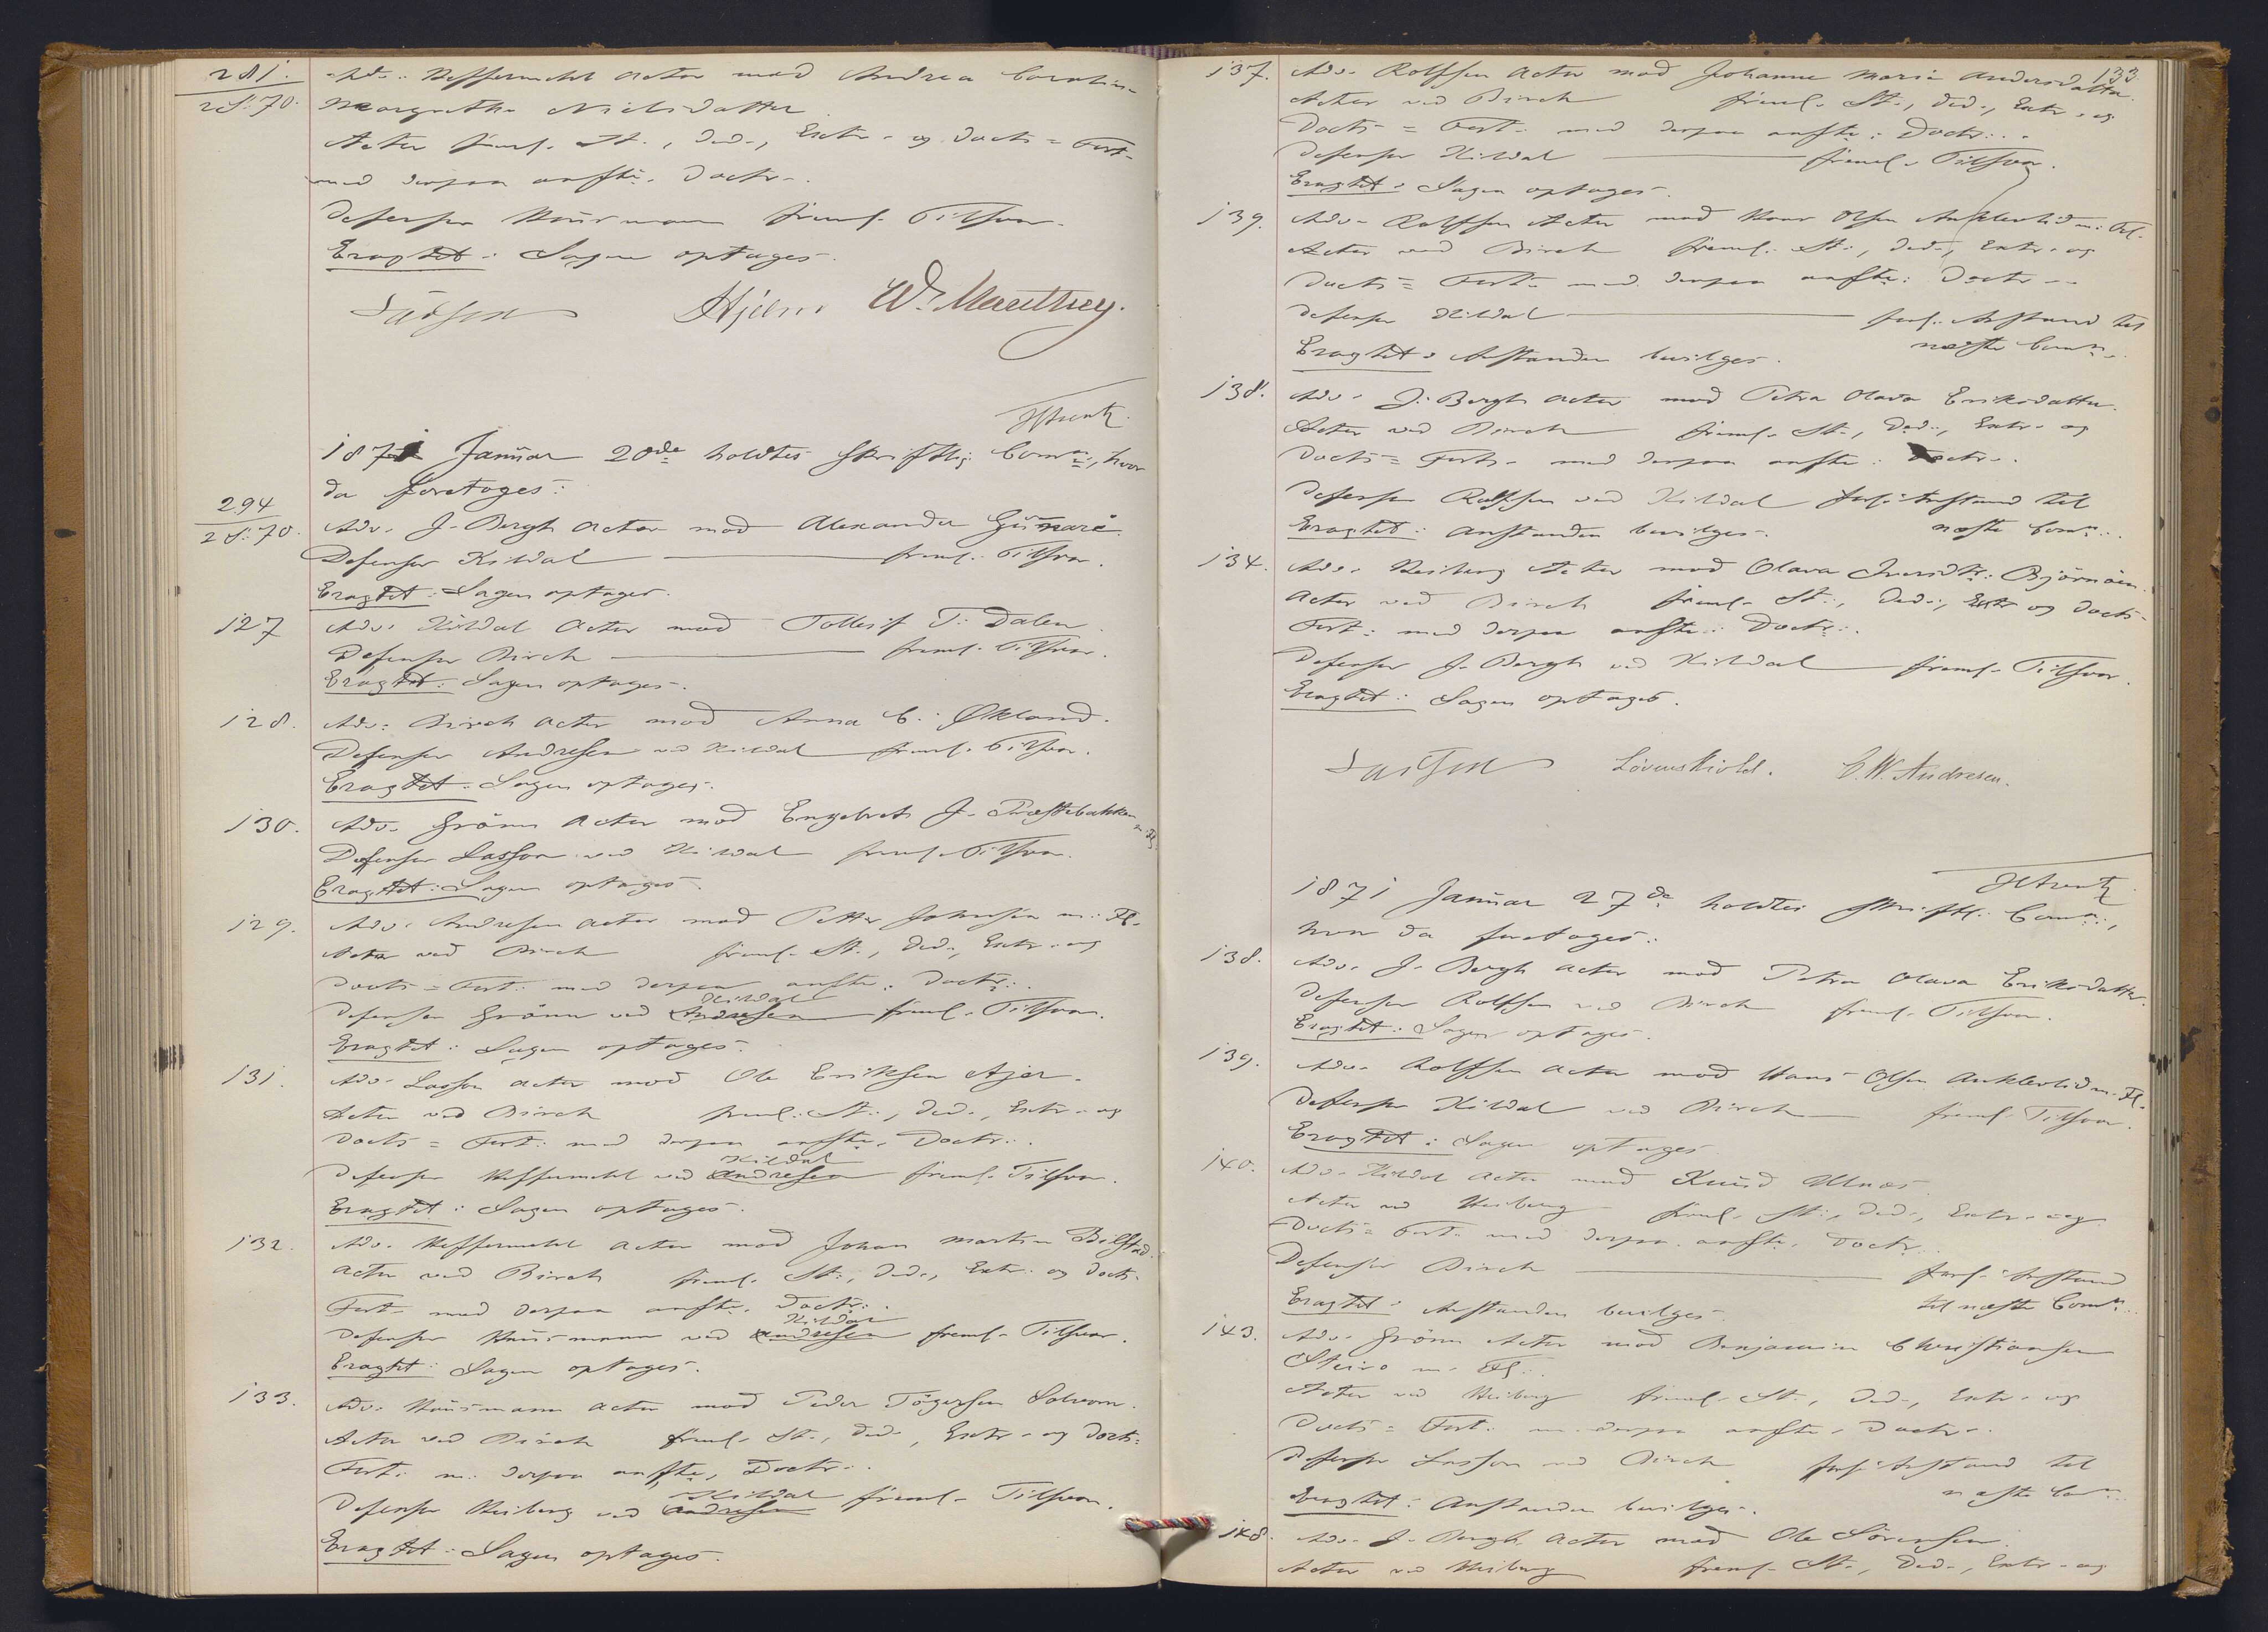 281.
2 S. 70.
Adv. Heffermehl Actor mod Andrea Carolin
Margrethe Nielsdatter
Actor freml. St., Ded., Extr. og Docts = Fort.
med derpaa anførte Doctr.
Defensor Huusmann freml. Tilsvar.
Eragtet: Sagen optages.
Lasson Hjelm W. Manthey.
HArentz
1871 Januar 20de holdtes skriftlig Comm:, hvor
da foretoges:
294
2 S. 70.
Adv. J. Bergh Actor mod Alexander
Defensor Kildal freml. Tilsvar.
Eragtet: Sagen optages.
127
Adv. Kildal Actor mod Tollerif T. Dalen
Defensor Birch freml. Tilsvar.
Eragtet: Sagen optages.
128.
Adv. Birch Actor mod Anna C. Økland.
Defensor Andresen ved Kildal freml. Tilsvar.
Eragtet: Sagen optages.
130.
Adv. Grönn Actor mod Engebret J. Præstebakken m. Fl.
Defensor Lasson ved Kildal freml. Tilsvar.
Eragtet: Sagen optages.
129.
Adv. Andresen Actor mod Petter Johnsen m. Fl.
Actor ved Birch freml. St., Ded., Extr. og
Docts = Fort. med derpaa anførte Doctr.
Defensor Grönn ved Andresen Kildal freml. Tilsvar.
Eragtet: Sagen optages.
131.
Adv. Lasson Actor mod Ole Eriksen Ajer.
Actor ved Birch freml. St., Ded., Extr. og
Docts = Fort. med derpaa anførte Doctr.
Defensor Heffermehl ved Andresen Kildal freml. Tilsvar.
Eragtet: Sagen optages.
132.
Adv. Heffermehl Actor mod Johan Martin Bilstad.
Actor ved Birch freml. St., Ded., Extr. og Docts-
Fort. med derpaa anførte Doctr.
Defensor Huusmann ved Andresen Kildal freml. Tilsvar.
Eragtet: Sagen optages.
133.
Adv. Huusmann Actor mod Peder Tögersen Solvorn.
Actor ved Birch freml. St., Ded., Extr. og Docts-
Fort. m. derpaa anførte, Doctr.
Defensor Heiberg ved Andresen Kildal freml. Tilsvar.
Eragtet: Sagen optages.
133.
137.
Adv. Rolfsen Actor mod Johanne Marie Andersdatter.
Actor ved Birch freml. St., Ded., Extr. og
Docts = Fort. med derpaa anførte Doctr.
Defensor Kildal freml. Tilsvar.
Eragtet: Sagen optages.
139.
Adv. Rolfsen Actor mod Hans Olsen Anklevlid m. Fl.
Actor ved Birch freml. St., Ded., Extr. og
Docts = Fort. med derpaa anførte Doctr.
Defensor Kildal forl. Anstand til
næste Comn.
Eragtet: Anstanden bevilges.
138.
Adv. J. Bergh Actor mod Petra Olava Eriksdatter.
Actor ved Birch freml. St., Ded., Extr. og
Docts = Fort. med derpaa anførte Doctr.
Defensor Rolfsen ved Kildal forl. Anstand til
næste Comn.
Eragtet: Anstanden bevilges.
134.
Adv. Heiberg Actor mod Olava Iversdtr. Björnöen.
Actor ved Birch freml. St., Ded., Extr og Docts-
Fort. med derpaa anførte Doctr.
Defensor J. Bergh ved Kildal freml. Tilsvar.
Eragtet: Sagen optages.
Lasson Lövenskiold. C. W. Andresen.
HArentz
1871 Januar 27de holdtes skriftl. Comn.,
hvor da foretoges:
138.
Adv. J. Bergh Actor mod Petra Olava Eriksdatter.
Defensor Rolfsen ved Birch freml. Tilsvar.
Eragtet: Sagen optages.
139.
Adv. Rolfsen Actor mod Hans Olsen Anklevlid m. Fl.
Defensor Kildal ved Birch freml. Tilsvar.
Eragtet: Sagen optages
140.
Adv. Kildal Actor mod Knud Ulnæs
Actor ved Heiberg freml. St., Ded., Extr. og
Docts = Fort. med derpaa anførte Doctr.
Defensor Birch forl. Anstand
til næste Comn.
Eragtet: Anstanden bevilges.
143.
Adv. Grönn Actor mod Benjamin Christiansen
Steiro m. Fl.
Actor ved Heiberg freml. St., Ded., Extr. og
Docts = Fort. m. derpaa anførte Doctr.
Defensor Lasson ved Birch forl. Anstand til
næste Comn.
Eragtet: Anstanden bevilges.
148.
Adv. J. Bergh Actor mod Ole Sörensen.
Actor ved Heiberg freml. St., Ded., Extr. og